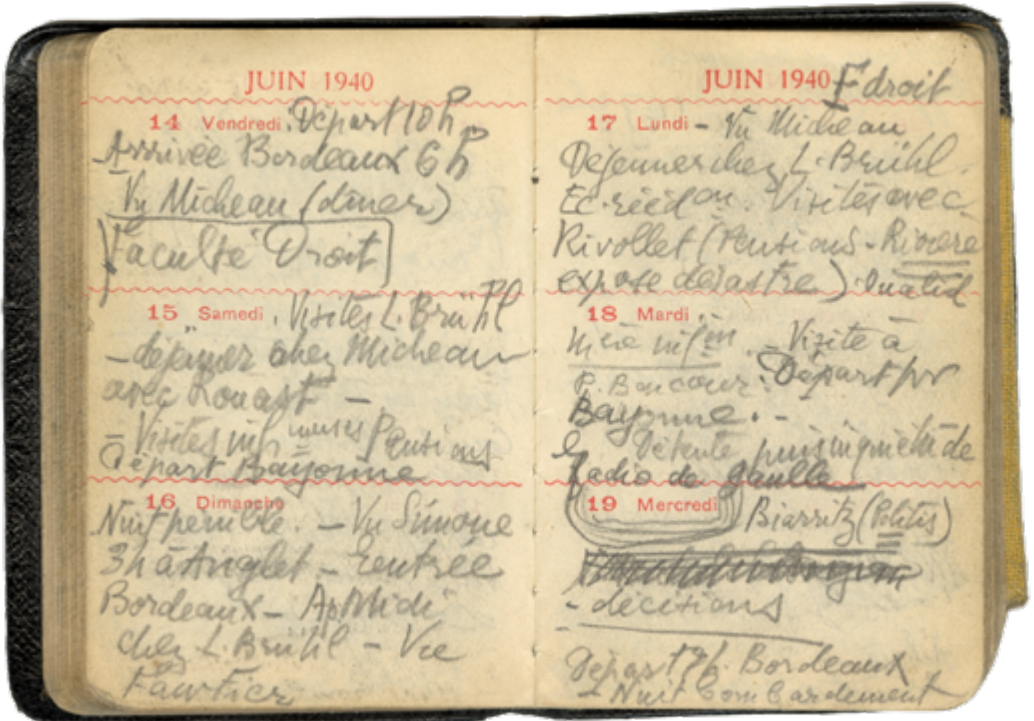 JUIN 1940
14 Vendredi. Départ 10h
Arrivée Bordeaux 6h
Vu Micheau (dîner)
Faculté Droit
15 Samedi. Visites L. Brühl
– déjeuner chez Micheau
avec Rouast –
– Visites Pensions
Départ Bayonne
16 Dimanche
Nuit pénible. – Vu Simone
3h à Anglet – Rentrée
Bordeaux – Ap Midi
chez L. Brühl – Vu
JUIN 1940 F droit
17 Lundi – Vu Micheau
Déjeuner chez L. Brühl.
Visites avec
Rivollet (Pensions – Rivière
expose désastre)
18 Mardi
– Visite à
P. Boncour. Départ pr
Bayonne. –
Détente puis inquiétude
Radio de Gaulle
19 Mercredi Biarritz (Politis)
- décisions
Départ Bordeaux
– Nuit bombardement